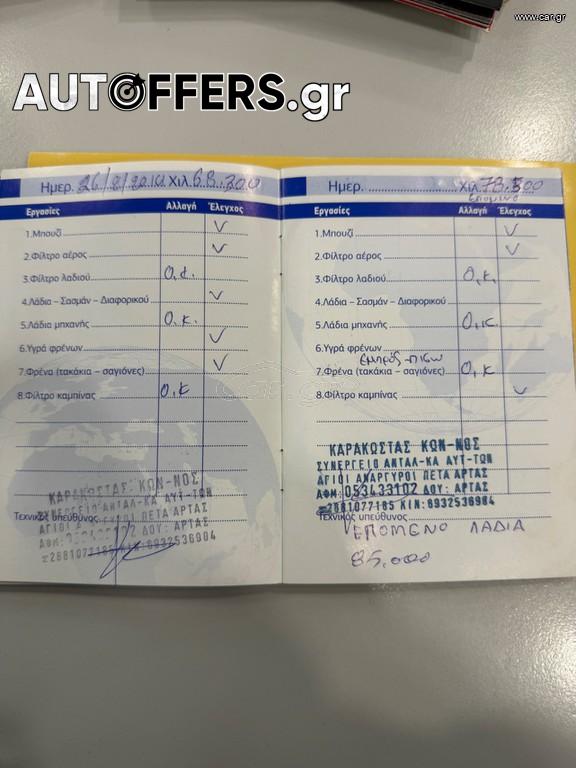 www.car.gr
AUTOFFERS.gr
Ημερ. Χιλ. 68.300
Εργασίες Αλλαγή Έλεγχος
1.Μπουζί
2.Φίλτρο αέρος
3.Φίλτρο λαδιού
4.Λάδια – Σασμάν – Διαφορικού
5.Λάδια μηχανής Ο.κ.
6.Υγρά φρένων
7.Φρένα (τακάκια – σαγιόνες)
8.Φίλτρο καμπίνας Ο.κ
ΚΑΡΑΚΩΣΤΑΣ ΚΩΝ-ΝΟΣ
ΣΥΝΕΡΓΕΙΟ ΑΝΤΑΛ-ΚΑ ΑΥΤ-ΤΩΝ
ΑΓΙΟΙ ΑΝΑΡΓΥΡΟΙ ΠΕΤΑ ΑΡΤΑΣ
Τεχνικός υπεύθυνος
ΑΦΜ: ΔΟΥ: ΑΡΤΑΣ
2681077185 ΚΙΝ: 6932536984
Ημερ. Χιλ. 78.500
Εργασίες Αλλαγή Έλεγχος
1.Μπουζί
2.Φίλτρο αέρος
3.Φίλτρο λαδιού Ο.κ.
4.Λάδια – Σασμάν – Διαφορικού
5.Λάδια μηχανής Ο.κ.
6.Υγρά φρένων
εμπρός-πισω
7.Φρένα (τακάκια – σαγιόνες) Ο.κ
8.Φίλτρο καμπίνας
ΚΑΡΑΚΩΣΤΑΣ ΚΩΝ-ΝΟΣ
ΣΥΝΕΡΓΕΙΟ ΑΝΤΑΛ-ΚΑ ΑΥΤ-ΤΩΝ
ΑΓΙΟΙ ΑΝΑΡΓΥΡΟΙ ΠΕΤΑ ΑΡΤΑΣ
ΑΦΜ: 053433102 ΔΟΥ: ΑΡΤΑΣ
2681077185 ΚΙΝ: 6932536984
Τεχνικός υπεύθυνος
ΕΠΟΜΕΝΟ ΛΑΔΙΑ
85.000